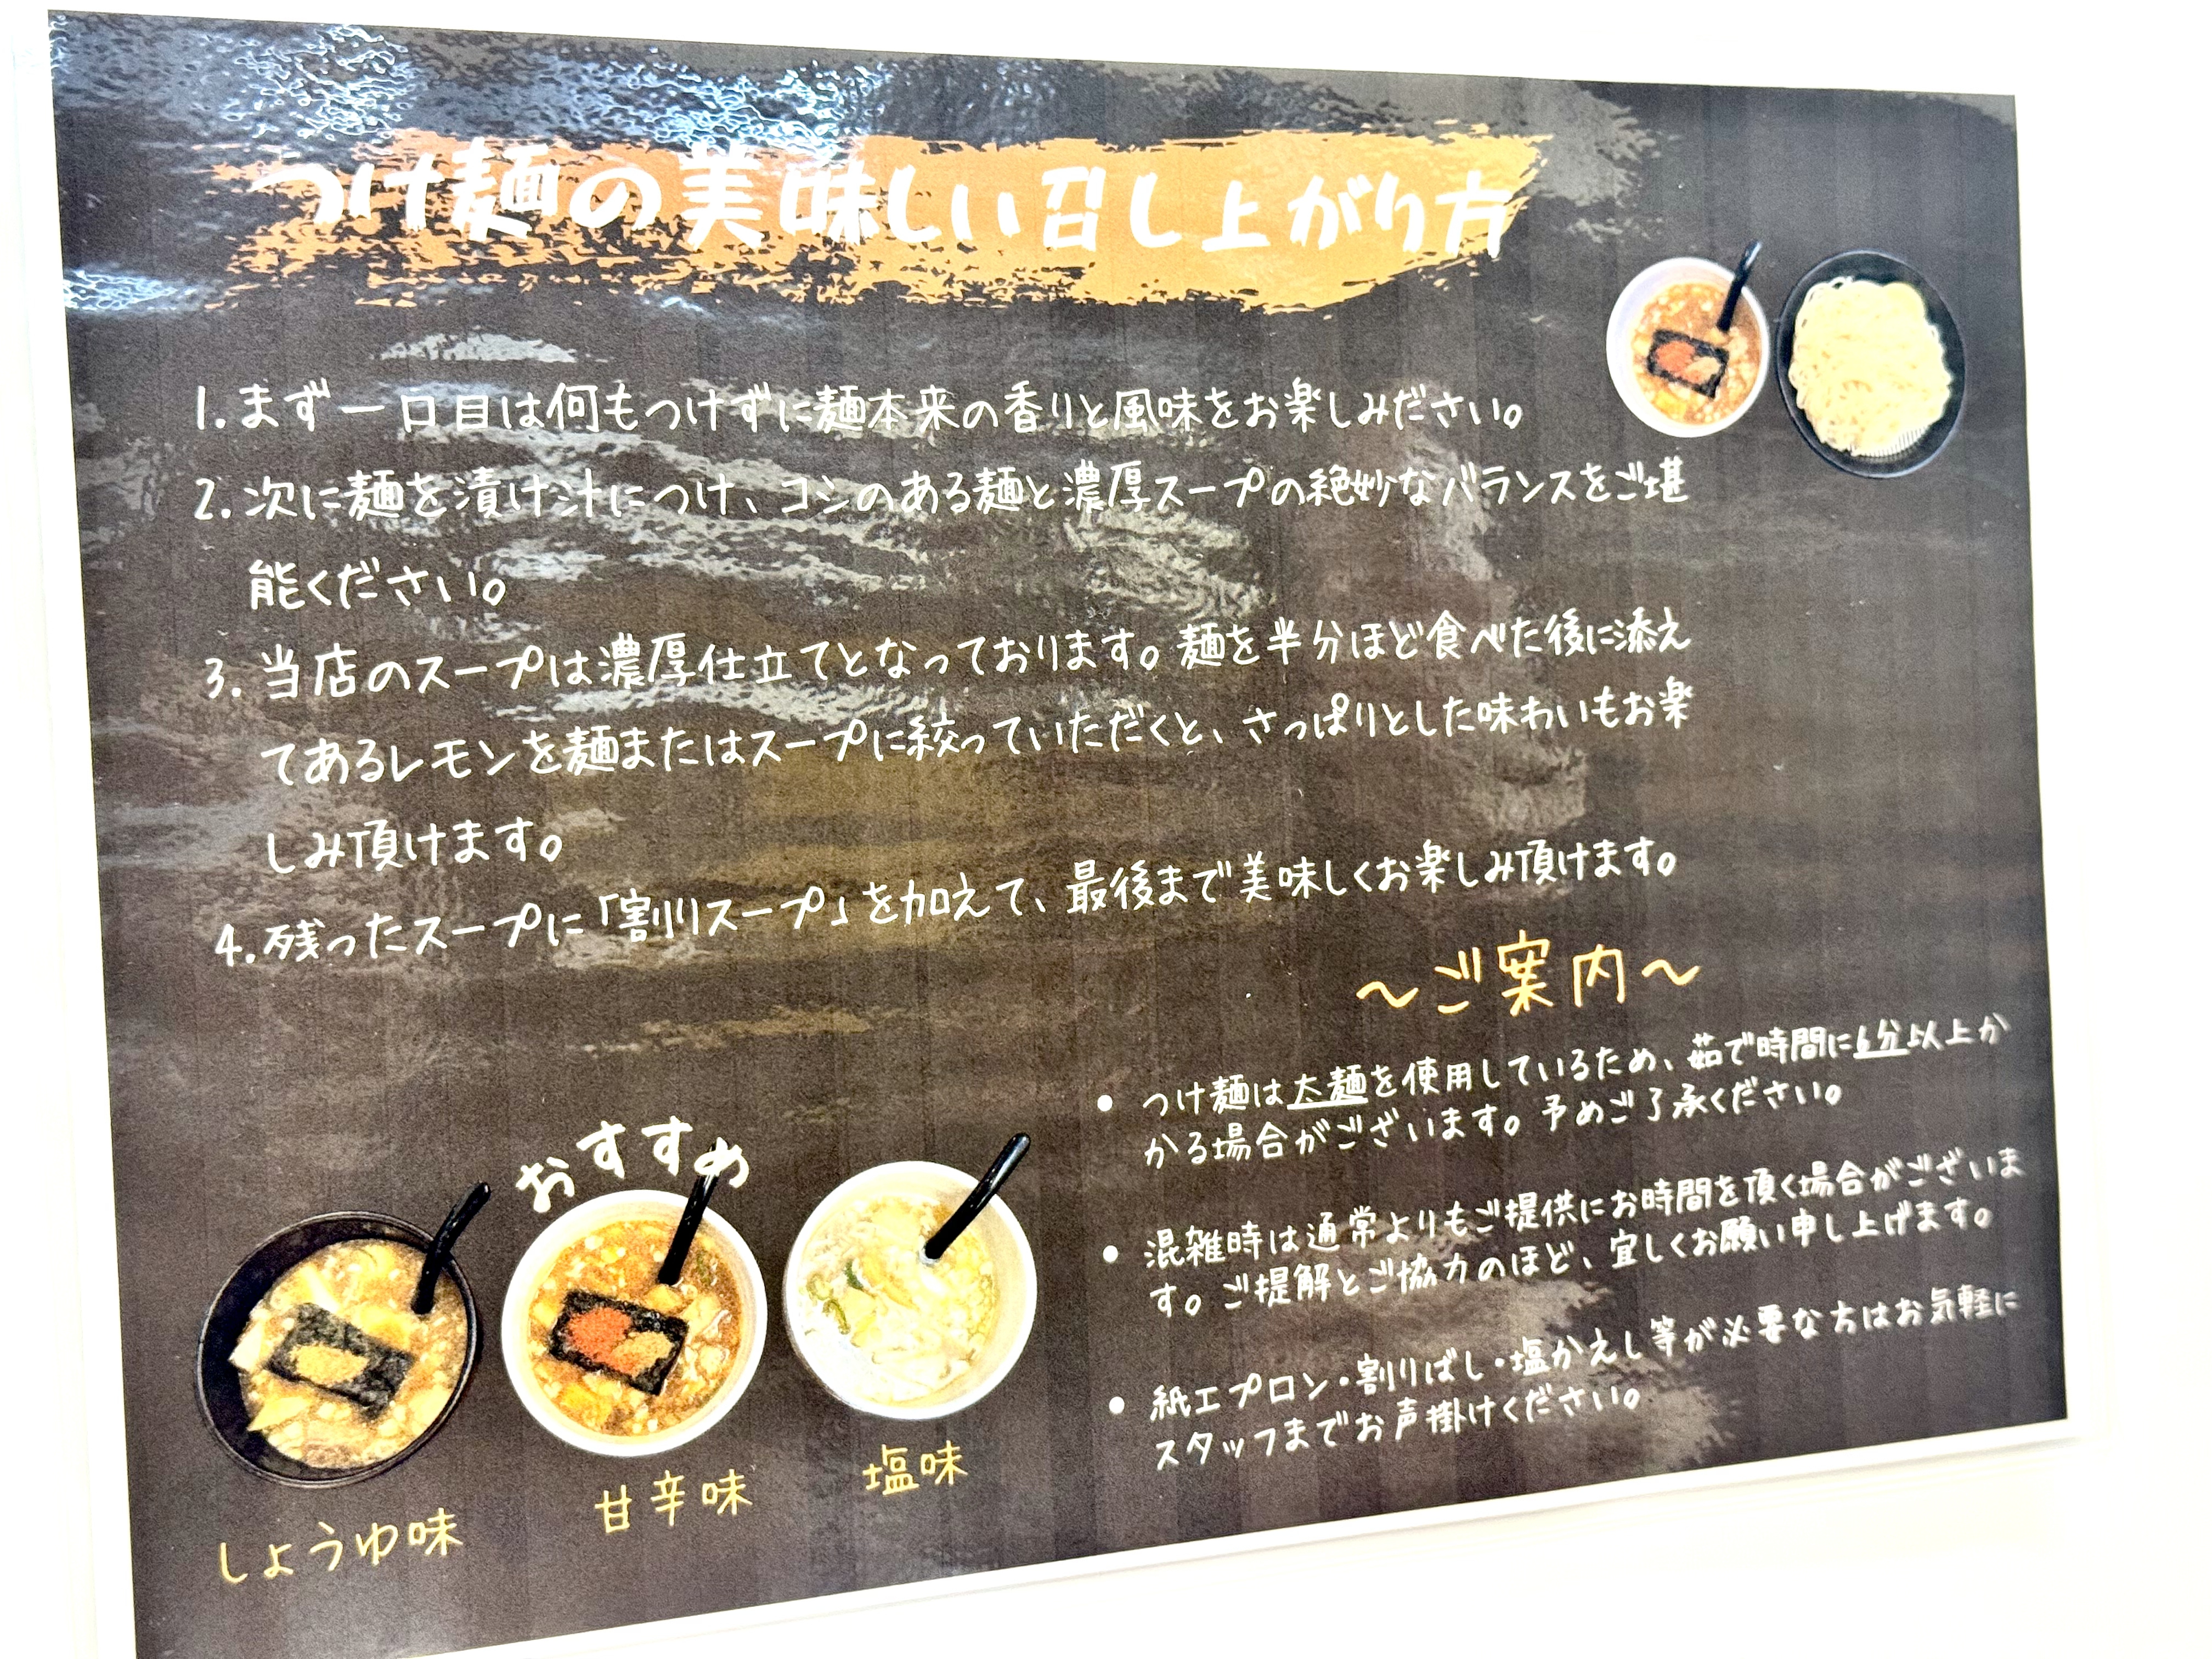 つけ麺の美味しい召し上がり方
1. まず一口目は何もつけずに麺本来の香りと風味をお楽しみださい。
2. 次に麺を漬け汁につけ、コシのある麺と濃厚スープの絶妙なバランスをご堪
能ください。
3. 当店のスープは濃厚仕立てとなっております。麺を半分ほど食べた後に添え
てあるレモンを麺またはスープに絞っていただくと、さっぱりとした味わいもお楽
しみ頂けます。
4. 残ったスープに「割りスープ」を加えて、最後まで美味しくお楽しみ頂けます。
～ご案内～
• つけ麺は太麺を使用しているため、茹で時間に6分以上か
かる場合がございます。予めご了承ください。
• 混雑時は通常よりもご提供にお時間を頂く場合がございま
す。ご提解とご協力のほど、宜しくお願い申し上げます。
• 紙エプロン・割りばし・塩かえし等が必要な方はお気軽に
スタッフまでお声掛けください。
おすすめ
しょうゆ味
甘辛味
塩味